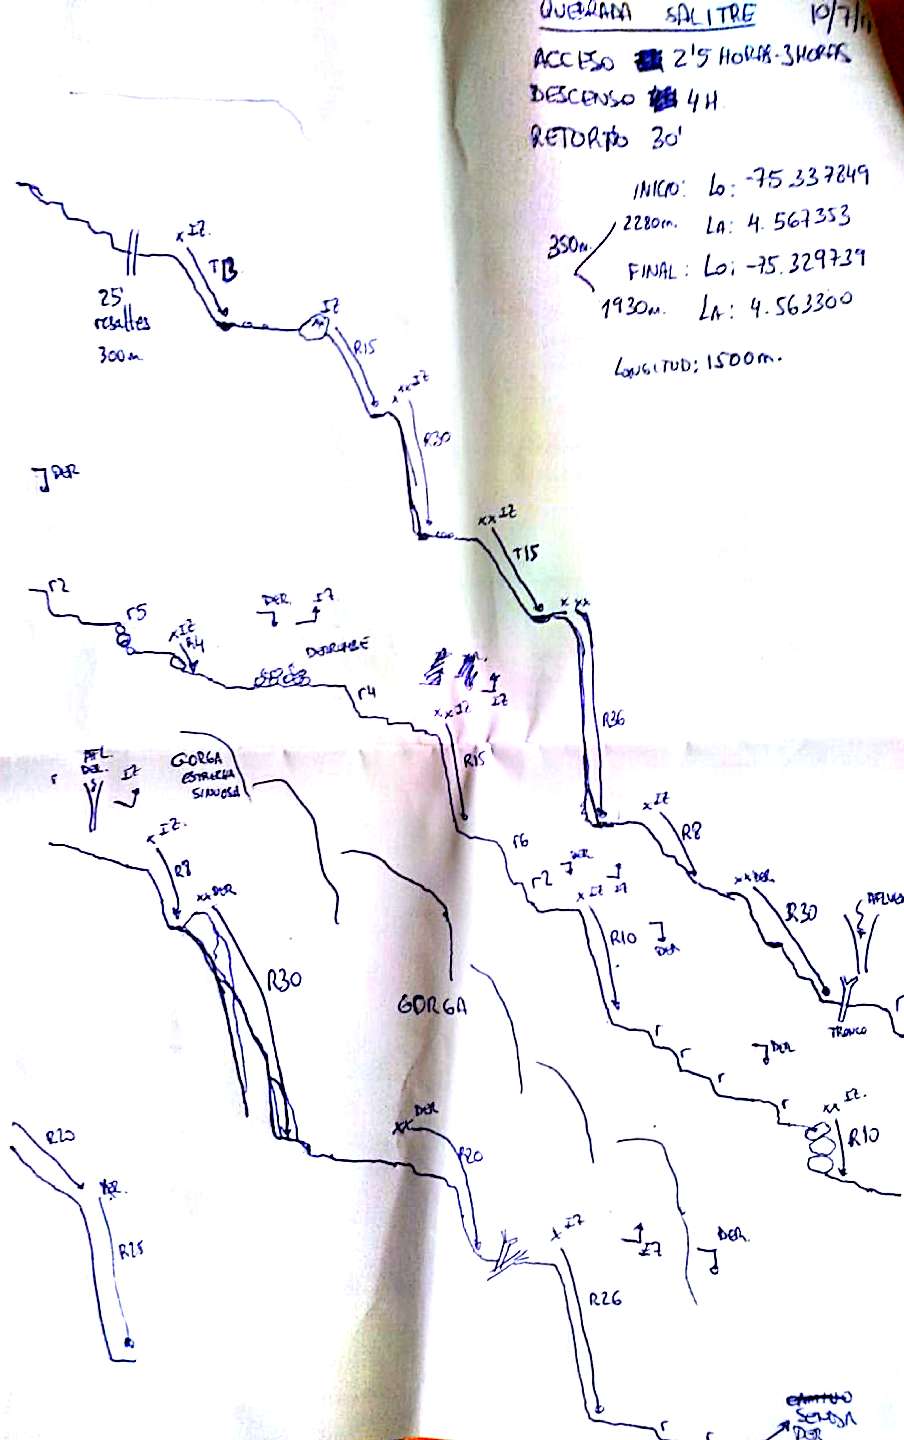 QUEBRADA SALITRE 10/7/
ACCESO 2'5 HORAS-3HORAS
DESCENSO 4H
RETORNO 30'
INICIO: Lo: -75.337849
2280m. LA: 4.567353
350m.
FINAL: Lo: -75.329739
1930m. LA: 4.563300
LONGITUD: 1500m.
x IZ.
25'
resaltes
300m
IZ
R15
xx IZ
R30
DER
xx IZ
T15
x xx
R36
r2
r5
x IZ
R4
DER. IZ
DERRUMBE
r4
IZ
xx IZ
R15
r6
r2
DER
IZ
xx IZ
R10
DER
x IZ
R8
xx DER.
R30
TRONCO
r
r
r
r
DER
r
xx IZ.
R10
r
AFL.
DER.
IZ
GORGA
ESTRECHA
SINUOSA
x IZ.
R8
xx DER
R30
GORGA
xx DER
R20
x IZ
R26
IZ
DER.
R20
DER.
R25
r
r
SENDA
DER